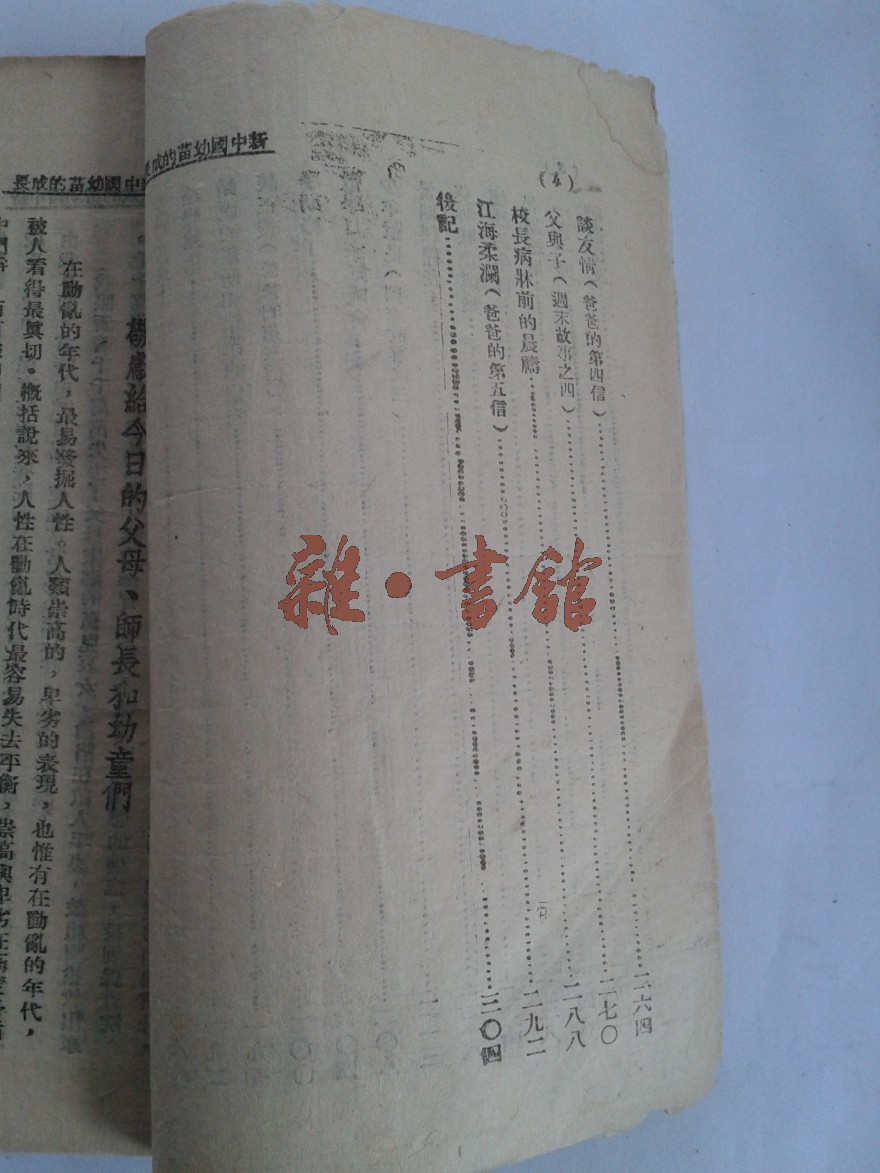 (4)
談友情(爸爸的第四信)……二六四
父與子(週末故事之四)……二七〇
校長病牀前的晨禱……二八八
江海柔瀾(爸爸的第五信)……二九二
後記……三〇四
新中國幼苗的成長
中國幼苗的成長
敬獻給今日的父母、師長和幼童們
在動亂的年代,最易發掘人性。人類崇高的,卑劣的表現,也惟有在動亂的年代,
被人看得最眞切。槪括說來,人性在動亂時代最容易失去平衡,崇高與卑劣在
雜·書館